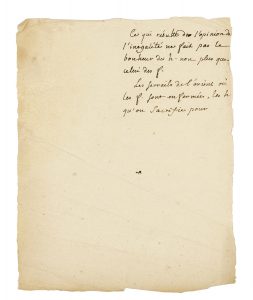 Ce qui résulte de l'opinion de
l'inégalité ne fait pas le
bonheur des h. non plus que
celui des f.
Les serrails de l'orient où
les f. sont enfermées, les h
qu'on sacrifie pour